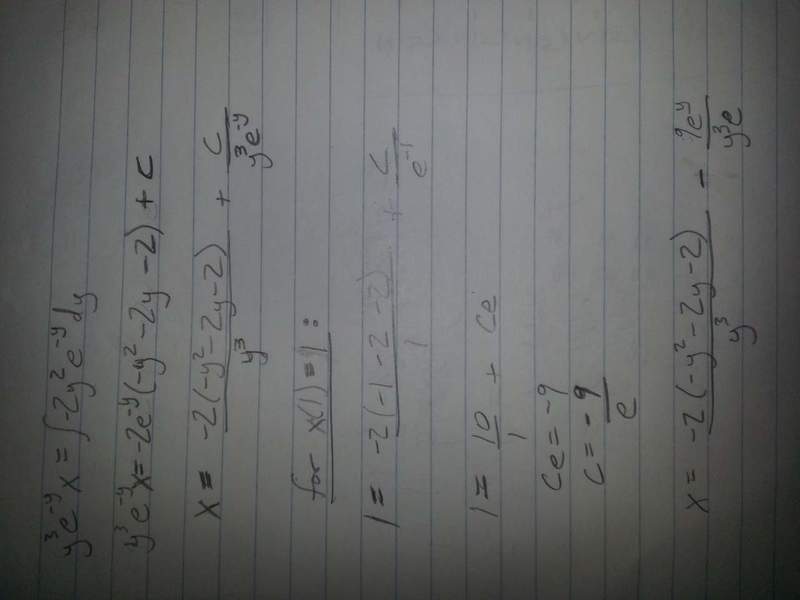 y³e⁻ʸx = ∫-2y²e⁻ʸdy
y³e⁻ʸx = -2e⁻ʸ(-y²-2y-2) + C
x = -2(-y²-2y-2)/y³ + C/y³e⁻ʸ
for x(1)=1:
1 = -2(-1-2-2)/1 + C/e⁻¹
1 = 10/1 + Ce
Ce = -9
C = -9/e
x = -2(-y²-2y-2)/y³ - 9eʸ/y³e